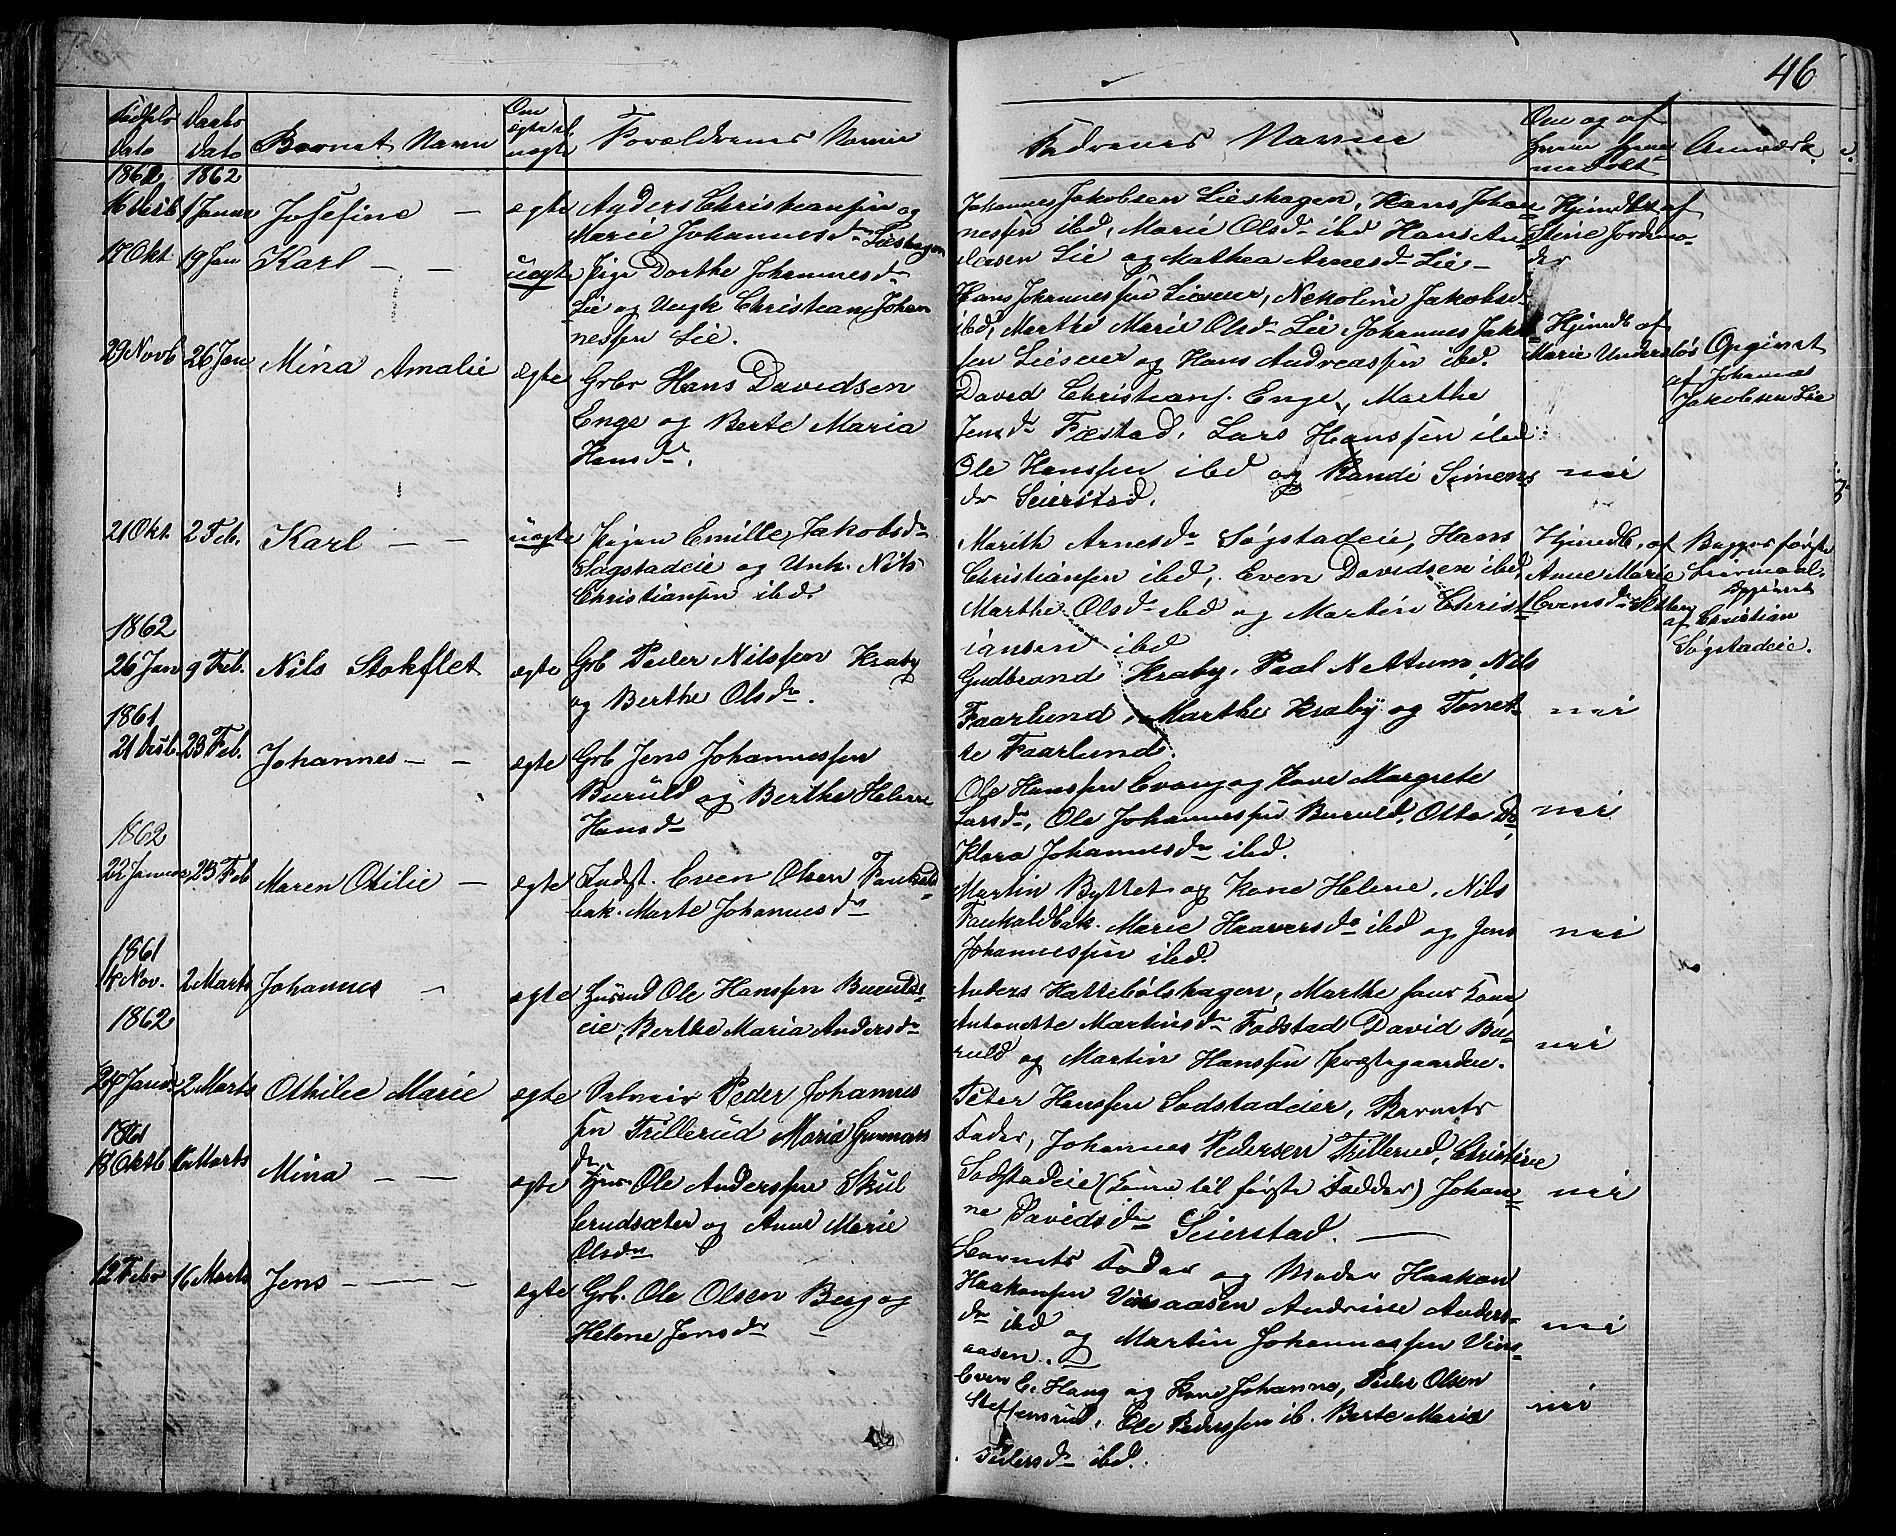 46
Fødsels dato
Daabs dato
Barnets Navn
Om ægte el. uægte
Forældrenes Navne
Fadrenes Navne
Om og af hvem hjemmedøbt
Anmærk.
1861 1862
16 Desb 1 Januar Josefine — ægte Anders Christiansen og
Marie Johannesd. Lieshagen
Johannes Jakobsen Lieshagen, Hans Johan-
nessen ibd, Marie Olsd. ibd Hans An-
dersen Lie og Mathea Arnesd. Lie —
Hjemdbt af
Stine Jordmo-
der
17 Okt 19 Jan Karl — — uægte Pige Dorthe Johannesd.
Lie og Ungk Christian Johan-
nessen Lie.
Hans Johannessen Lieeier, Nekoline Jakobsd.
ibd, Marthe Marie Olsd. Lie, Johannes Jakob-
sen Lieseier og Hans Andreassen ibd.
Hjemdb af
Marie Underløs
Opgivet
af Johannes
Jakobsen Lie
29 Novb 26 Jan Mina Amalie ægte Grbr Hans Davidsen
Enge og Berte Maria
Hansd.
David Christians. Enge, Marthe
Jensd. Fæstad, Lars Hanssen ibd
Ole Hanssen ibd og Randi Simens
dr Seierstad.
nei
21 Okt. 2 Feb. Karl — — uægte Pigen Emilie Jakobsd.
Søgstadeie og Unk. Nils
Christiansen ibd.
Marith Arnesd. Søgstadeie, Hans
Christiansen ibd, Even Davidsen ibd,
Marthe Olsd. ibd og Martin Christ-
iansen ibd
Hjemdb. af
Anne Marie
Evensd.
Begges første
Leiermaal.
Opgivet
af Christian
Søgstadeie.
1862
26 Jan 9 Feb. Nils Stokflet ægte Grb Peder Nilssen Kraby
og Berthe Olsd.
Gudbrand Kraby, Paal Nettum, Nils
Faarlund, Marthe Kraby og Tonet-
te Faarlund.
nei
1861
21 Desb. 23 Feb. Johannes — — ægte Grb Jens Johannessen
Buruld og Berthe Helene
Hansd.
Ole Hanssen Evang og Kone Margrete
Larsd., Ole Johannessen Buruld, Otto Do,
Klara Johannesd. ibd.
nei
1862
22 Januar 23 Feb Maren Otilie — ægte Indst. Even Olsen Faukald-
bak. Marte Johannesd.
Martin Byttet og Kone Helene, Nils
Faukaldbak. Marie Haaversd. ibd og Jens
Johannessen ibd.
nei
1861
14 Nov. 2 Marts Johannes — ægte Husmd Ole Hanssen Burulds-
eie, Berthe Maria Andersd.
Anders Hattebølshagen, Marthe hans Kone
Antonette Martinsd. Fodstad David Bu-
ruld og Martin Hanssen Præstegaarden.
nei
1862
24 Januar 2 Marts Othilie Marie ægte Selveier Peder Johannes
sen Trillerud Maria Gunmars
dr
Peter Hanssen Sodstadeier, Barnets
Fader, Johannes Pedersen Trillerud, Christine
Sodstadeie (Kone til første Fadder) Johan-
ne Davidsd. Seierstad. —
nei
1861
18 Oktb 16 Marts Mina — — ægte Hus Ole Anderssen Skul
lerudsæter og Anne Marie
Olsd.
Barnets Fader og Moder Haakon
Haakonsen Vinsaasen Andrine Anders-
dr ibd og Martin Johannessen Vins-
aasen.
nei
12 Febr 16 Marts Jens — — — ægte Grb. Ole Olsen Berg og
Helene Jensd. —
Even E. Haug og Kone Johanne, Peder Olsen
Steffensrud, Ole Pederssen ib. Berte Maria
Pedersd. ibd.
nei